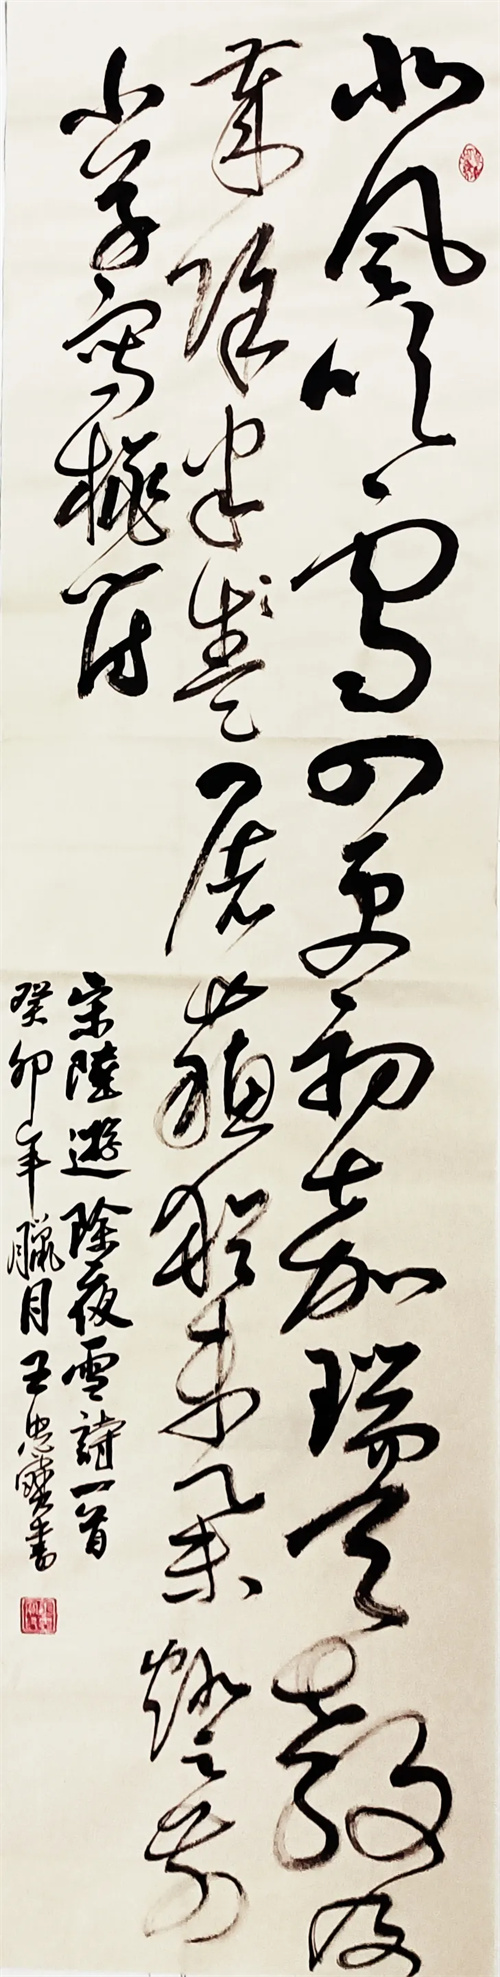 北風吹雪四更初嘉瑞天教及
歲除半盞屠蘇猶未舉燈前
小草寫桃符
宋陸遊除夜雪詩一首
癸卯年臘月王忠寶書